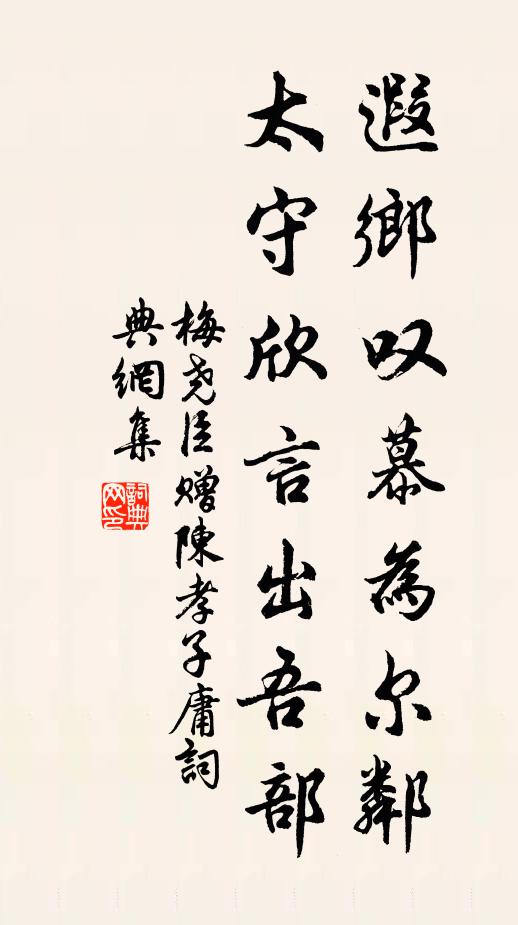 遐鄉叹慕為尔鄰
太守欣言出吾部
梅尧臣赠陳孝子庸詞
典網集
詞典
网印